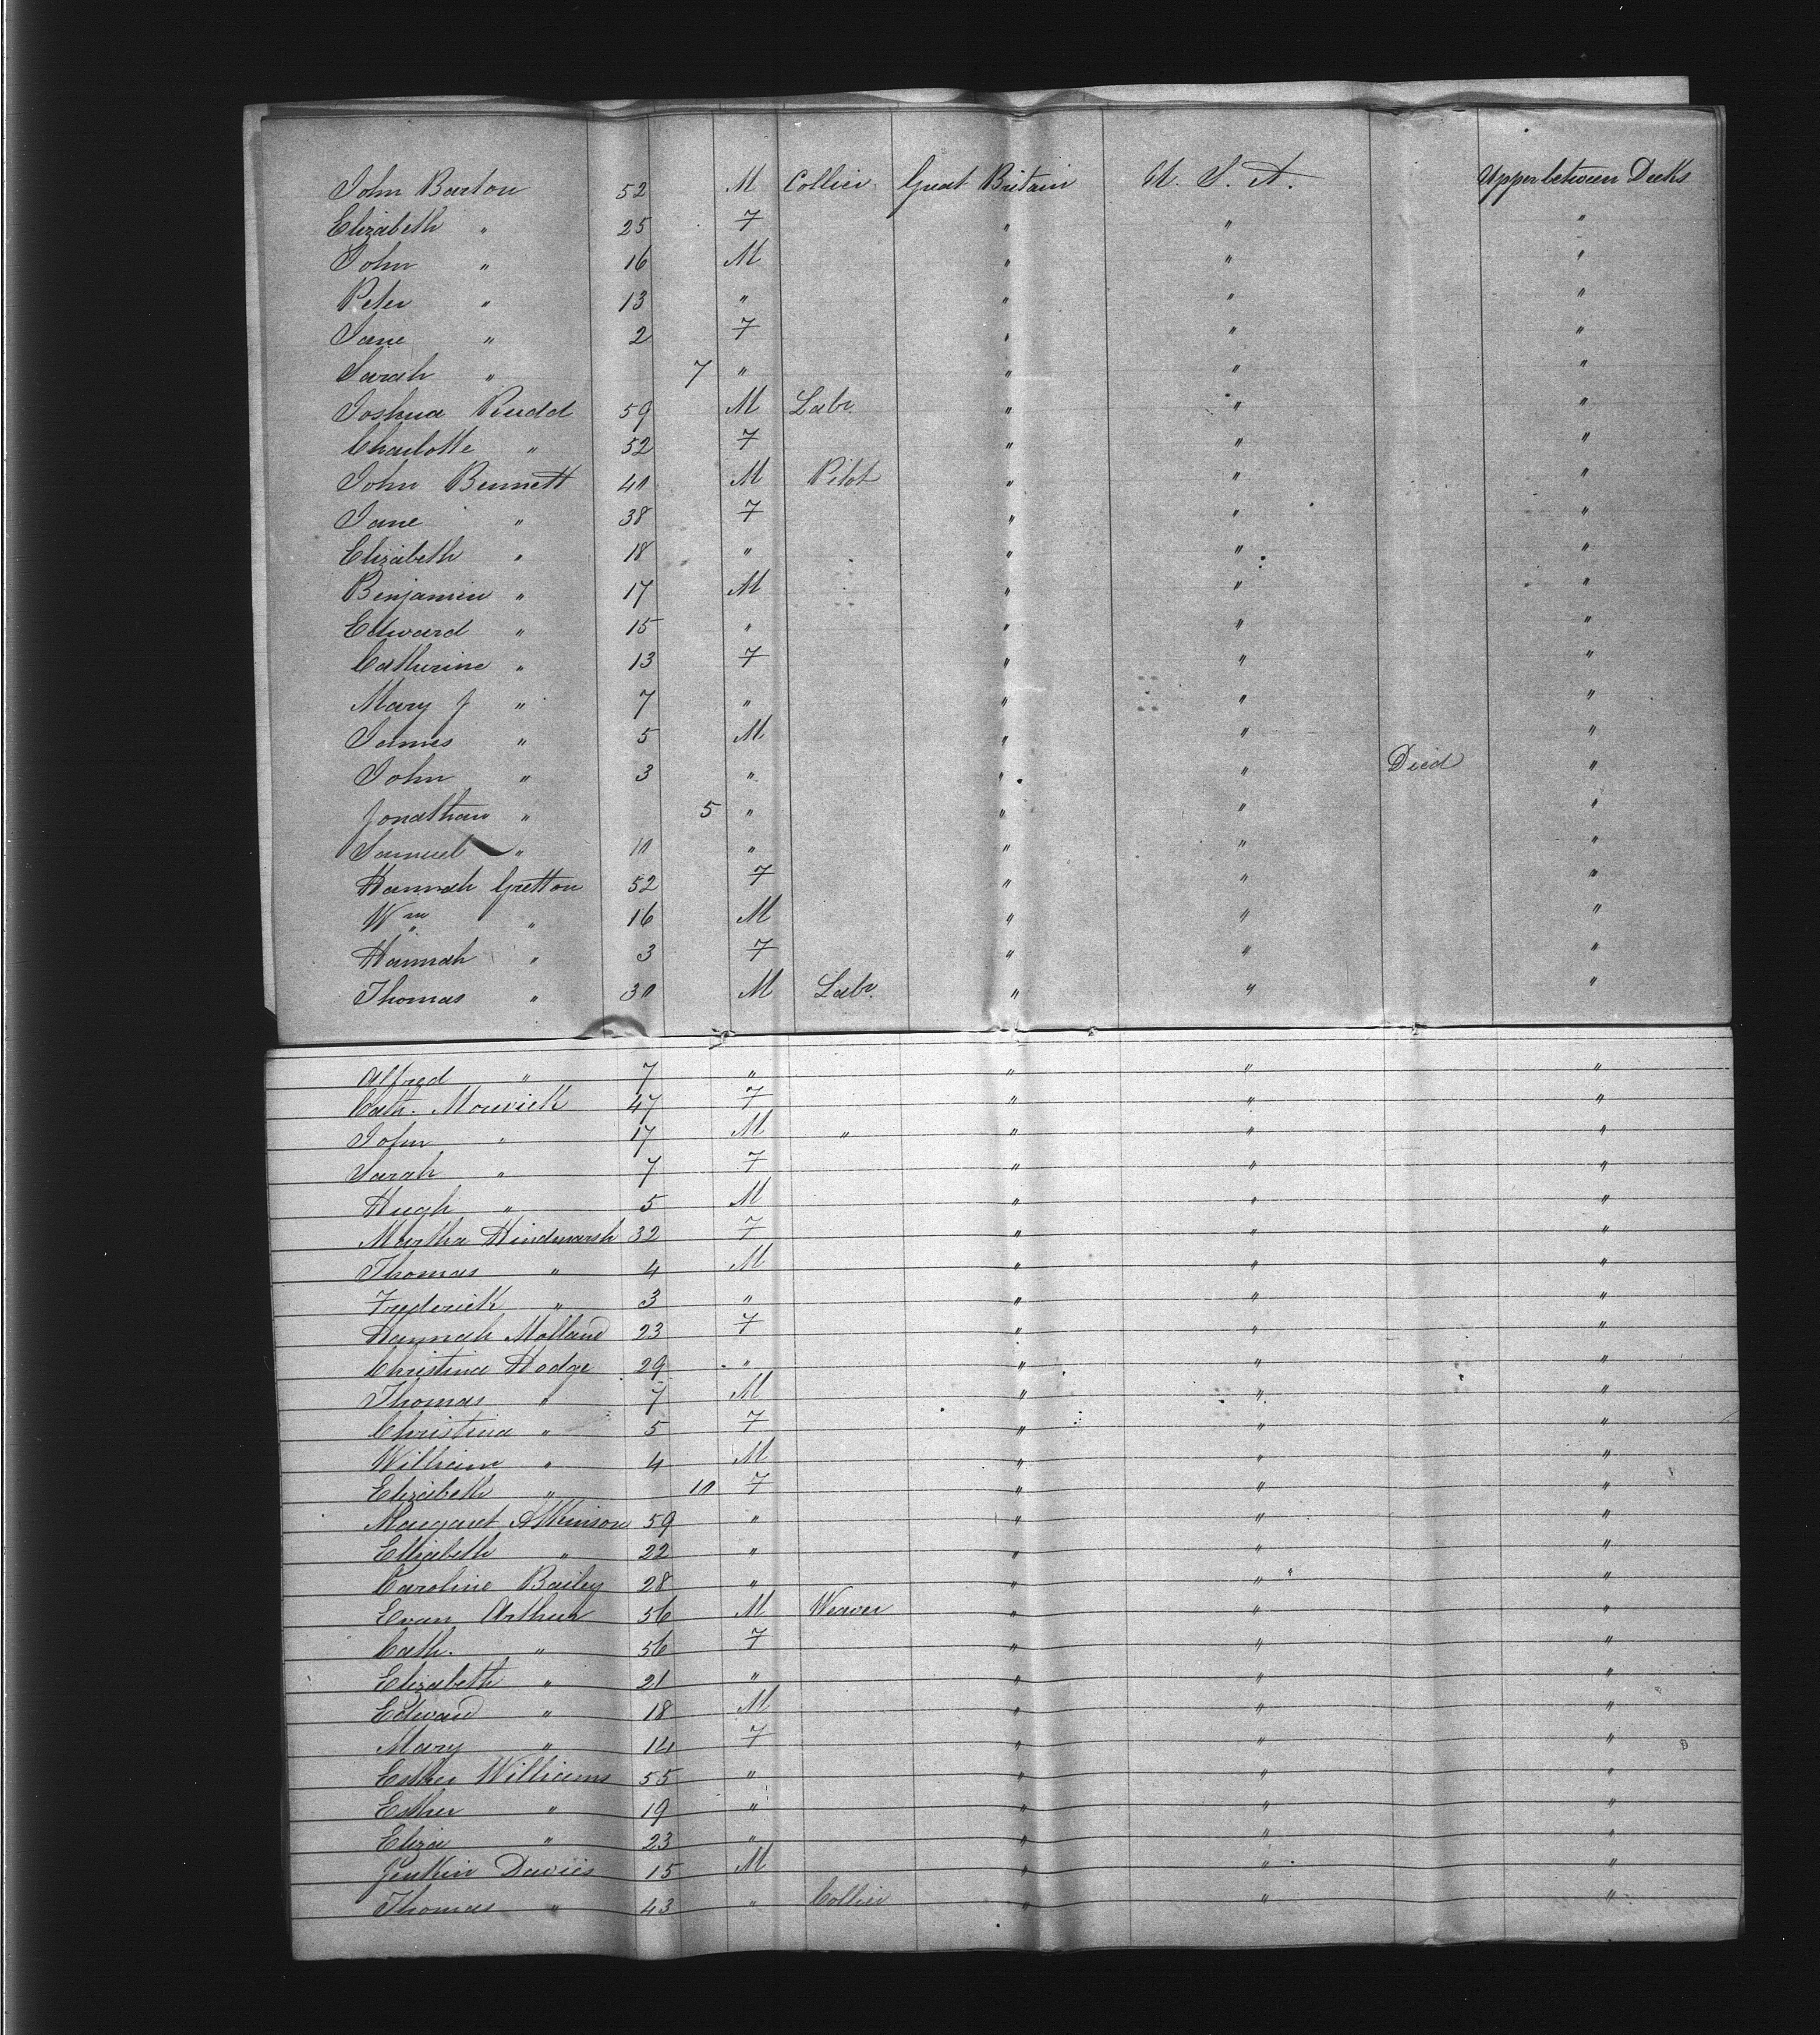 John Barton 52 M Collier Great Britain U. S. A. Upper between Decks
Elizabeth " 25 F " " "
John " 16 M " " "
Peter " 13 " " " "
Jane " 2 F " " "
Sarah " 7 " " " "
Joshua Rudd 59 M Labr. " " "
Charlotte " 52 F " " "
John Bennett 40 M Pilot " " "
Jane " 38 F " " "
Elizabeth " 18 " " " "
Benjamin " 17 M " " "
Edward " 15 " " " "
Catherine " 13 F " " "
Mary J " 7 " " " "
James " 5 M " " "
John " 3 " " " Died "
Jonathan " 5 " " " "
Samuel " 10 " " " "
Hannah Gretton 52 F " " "
Wm " 16 M " " "
Hannah " 3 F " " "
Thomas " 30 M Labr. " " "
Alfred " 7 " " " "
Cath. 47 F " " "
John " 17 M " " " "
Sarah " 7 F " " "
Hugh " 5 M " " "
Martha Hindmarsh 32 F " " "
Thomas " 4 M " " "
Frederick " 3 " " " "
Hannah Molland 23 F " " "
Christina Hodge 29 " " " "
Thomas " 7 M " " "
Christina " 5 F " " "
William " 4 M " " "
Elizabeth " 10 F " " "
Margaret Atkinson 59 " " " "
Elizabeth " 22 " " " "
Caroline Bailey 28 " " " "
Evan Arthur 56 M Weaver " " "
Cath. " 56 F " " "
Elizabeth " 21 " " " "
Edward " 18 M " " "
Mary " 14 F " " "
Esther Williams 55 " " " "
Esther " 19 " " " "
Eliza " 23 " " " "
Jenkin Davies 15 M " " "
Thomas " 43 " Collier " " "